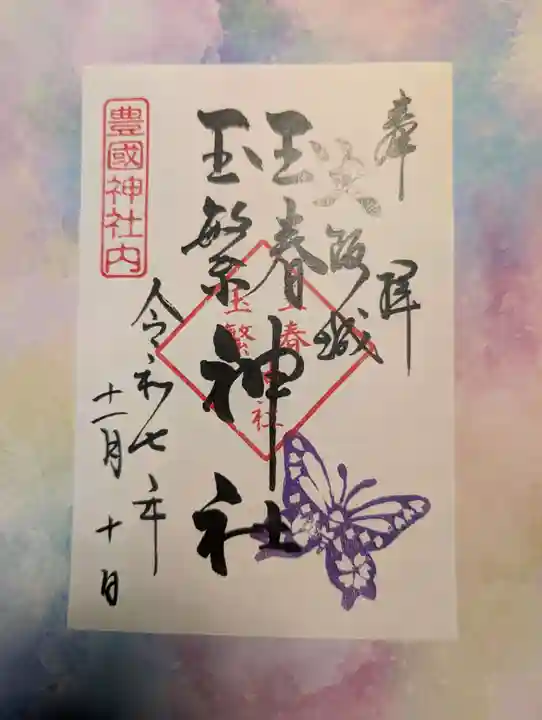 奉拝
大阪城
王春
玉繁
神社
王春
玉繁
神社
豊國神社内
令和七年
十一月十日